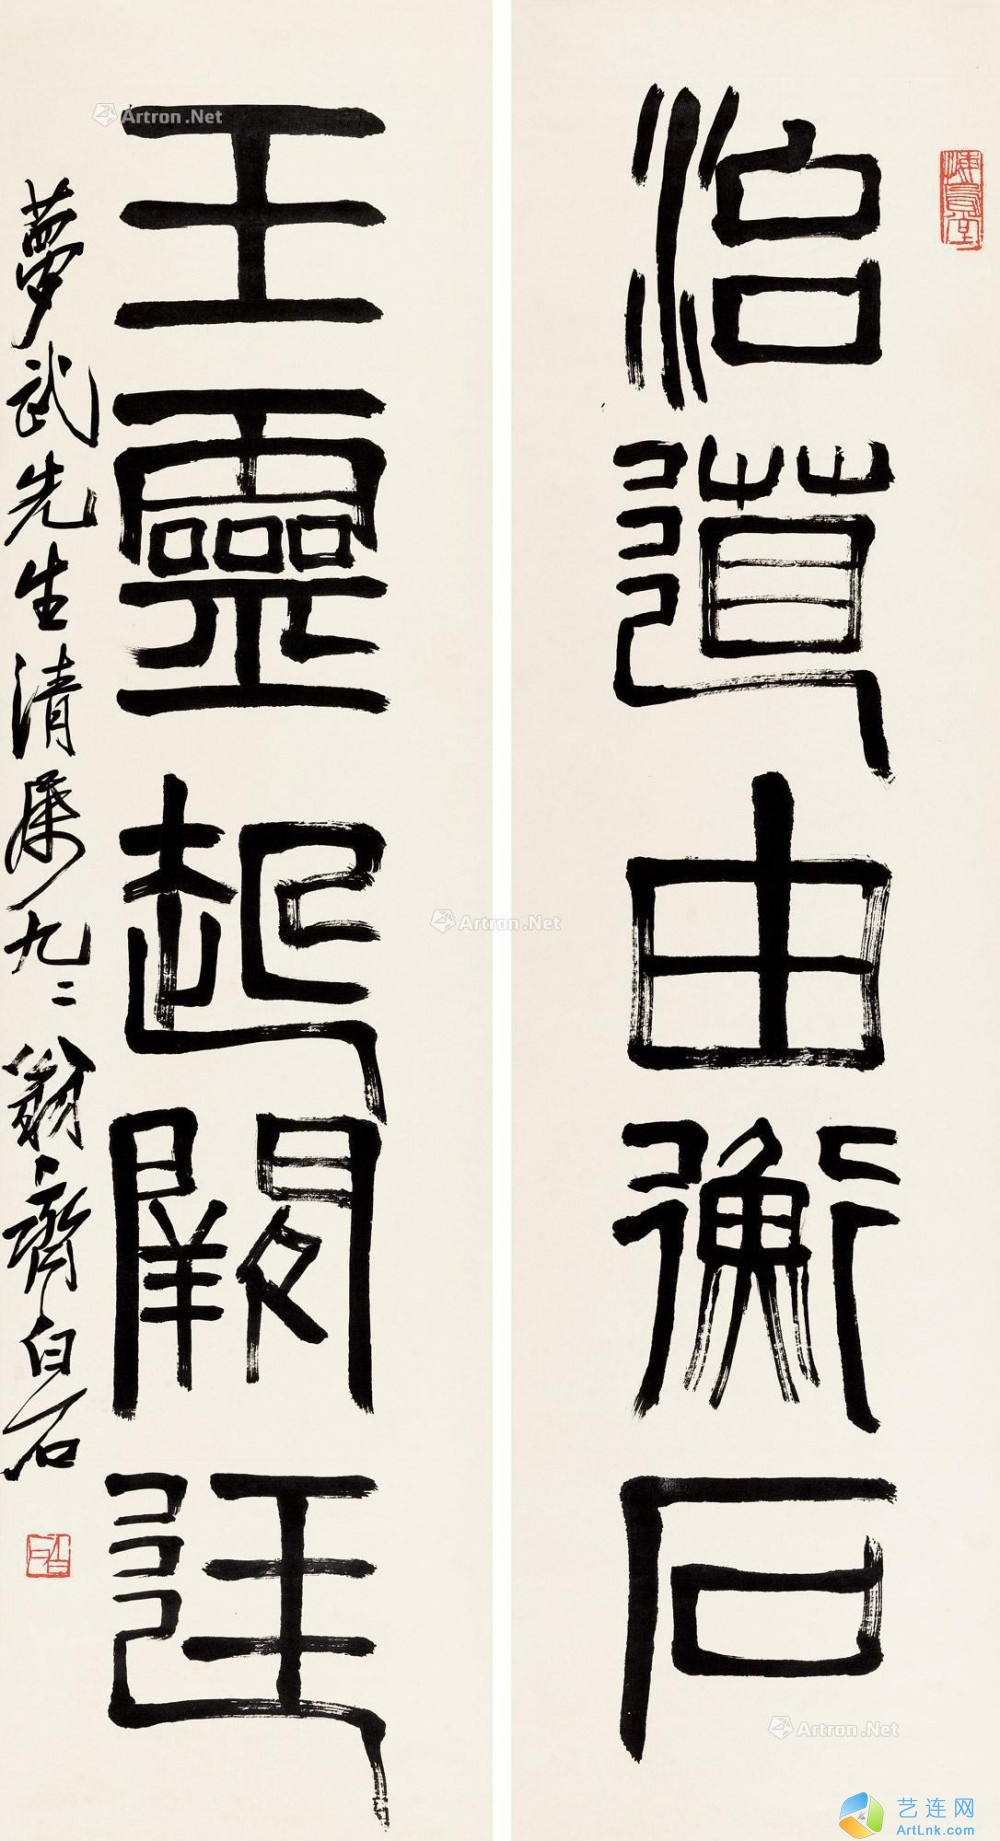 治道由衡石
王靈起闕廷
夢武先生清屬九二翁齊白石
悔烏堂
白石
Artron.Net
Artron.Net
Artron.Net
艺连网
ArtLnk.com